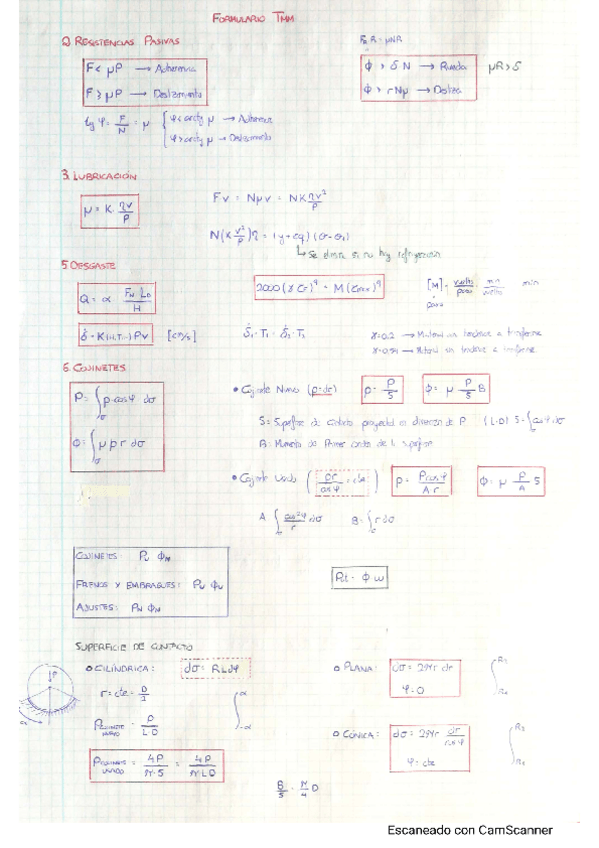 FORMULARIO TMM
2. RESISTENCIAS PASIVAS
F < μP → Adherencia
F ≥ μP → Deslizamiento
tg φ = F/N = μ { φ < arctg μ → Adherencia
φ > arctg μ → Deslizamiento
ϕ > δN → Rueda
ϕ > rNμ → Desliza
μR > δ
3. LUBRICACIÓN
μ = K · ηv/P
Fv = Nμv = NK ηv²/P
↳ Se elimina si no hay refrigeración
5. DESGASTE
Q = α FN·LD/H
δ̇ = K(H,T...) PV [cm/s]
[M] = vuelta/pasa · min/vuelta min
pasa
δ̇₁·T₁ = δ̇₂·T₂
6. COJINETES
P = ∫σ p·cosφ dσ
ϕ = ∫σ μ p r dσ
• Cojinete Nuevo (p=cte)
p = P/S
ϕ = μ P/S B
S = Superficie de contacto proyectada en dirección de P (L·D) S = ∫σ cosφ dσ
B = Momento de Primer orden de la superficie
• Cojinete Usado (pr/cosφ = cte)
p = P cosφ/A r
ϕ = μ P/A S
A = ∫σ cos²φ/r dσ
B = ∫σ r dσ
COJINETES:
FRENOS Y EMBRAGUES:
AJUSTES: PN ϕN
Pot = ϕ ω
SUPERFICIE DE CONTACTO
• CILÍNDRICA: dσ = RLdφ
r = cte = D/2
P COJINETE NUEVO = P/L·D
P COJINETE USADO = 4P/π·S = 4P/πLD
∫ α -α
• PLANA: dσ = 2πr dr
φ = 0
• CÓNICA: dσ = 2πr dr/cosφ
φ = cte
B/S = π/4 D
Escaneado con CamScanner